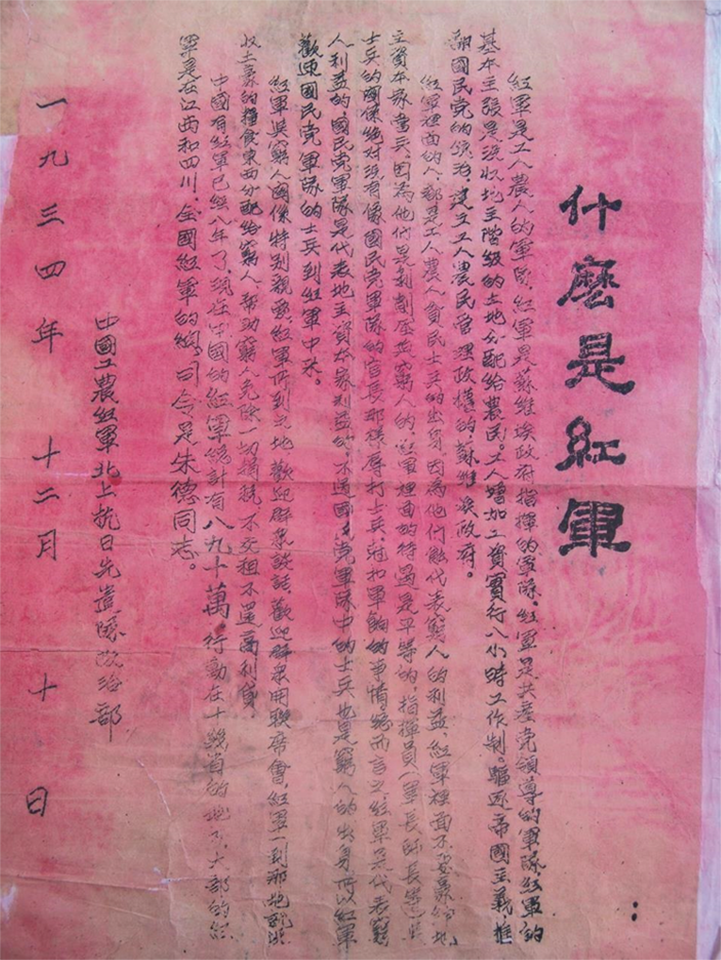 什麽是紅軍
紅軍是工人農人的軍隊、紅軍是蘇維埃政府指揮的軍隊、紅軍是共產党領導的軍隊、紅軍的
基本主張是沒收地主階級的土地分配給農民。工人增加工資實行八小時工作制。驅逐帝國主義推
翻國民党的統治、建立工人農民管理政權的蘇維埃政府。
紅軍裡面的人、都是工人農人貧民士兵的出身、因為他們能代表窮人的利益、紅軍裡面不要豪紳地
主資本家當兵、因為他們是剝削壓迫窮人的、紅軍裡面的待遇是平等的、指揮員（軍長師長
士兵的關係絕对沒有像國民党軍隊的官長那樣辱打士兵、尅扣軍餉的事情、總而言之、紅軍是代表窮
人利益的、國民党軍隊是代表地主資本家利益的、不過國民党軍隊中的士兵也是窮人的出身所以紅軍
歡迎國民党軍隊的士兵到紅軍中來。
紅軍與窮人關係特別親愛、紅軍所到之地、歡迎群衆談話、歡迎群衆開聯席會、紅軍一到那地就
收土豪的糧食東西分配給窮人、帮助窮人免除一切捐稅、不交租不還高利貸。
中國有紅軍已經八年了、現在中國的紅軍總計有八九十萬、行動在十幾省的地方、大部的紅
軍是在江西和四川、全國紅軍的總司令是朱德同志。
中國工農紅軍北上抗日先遣隊政治部
一九三四年 十二月 十 日